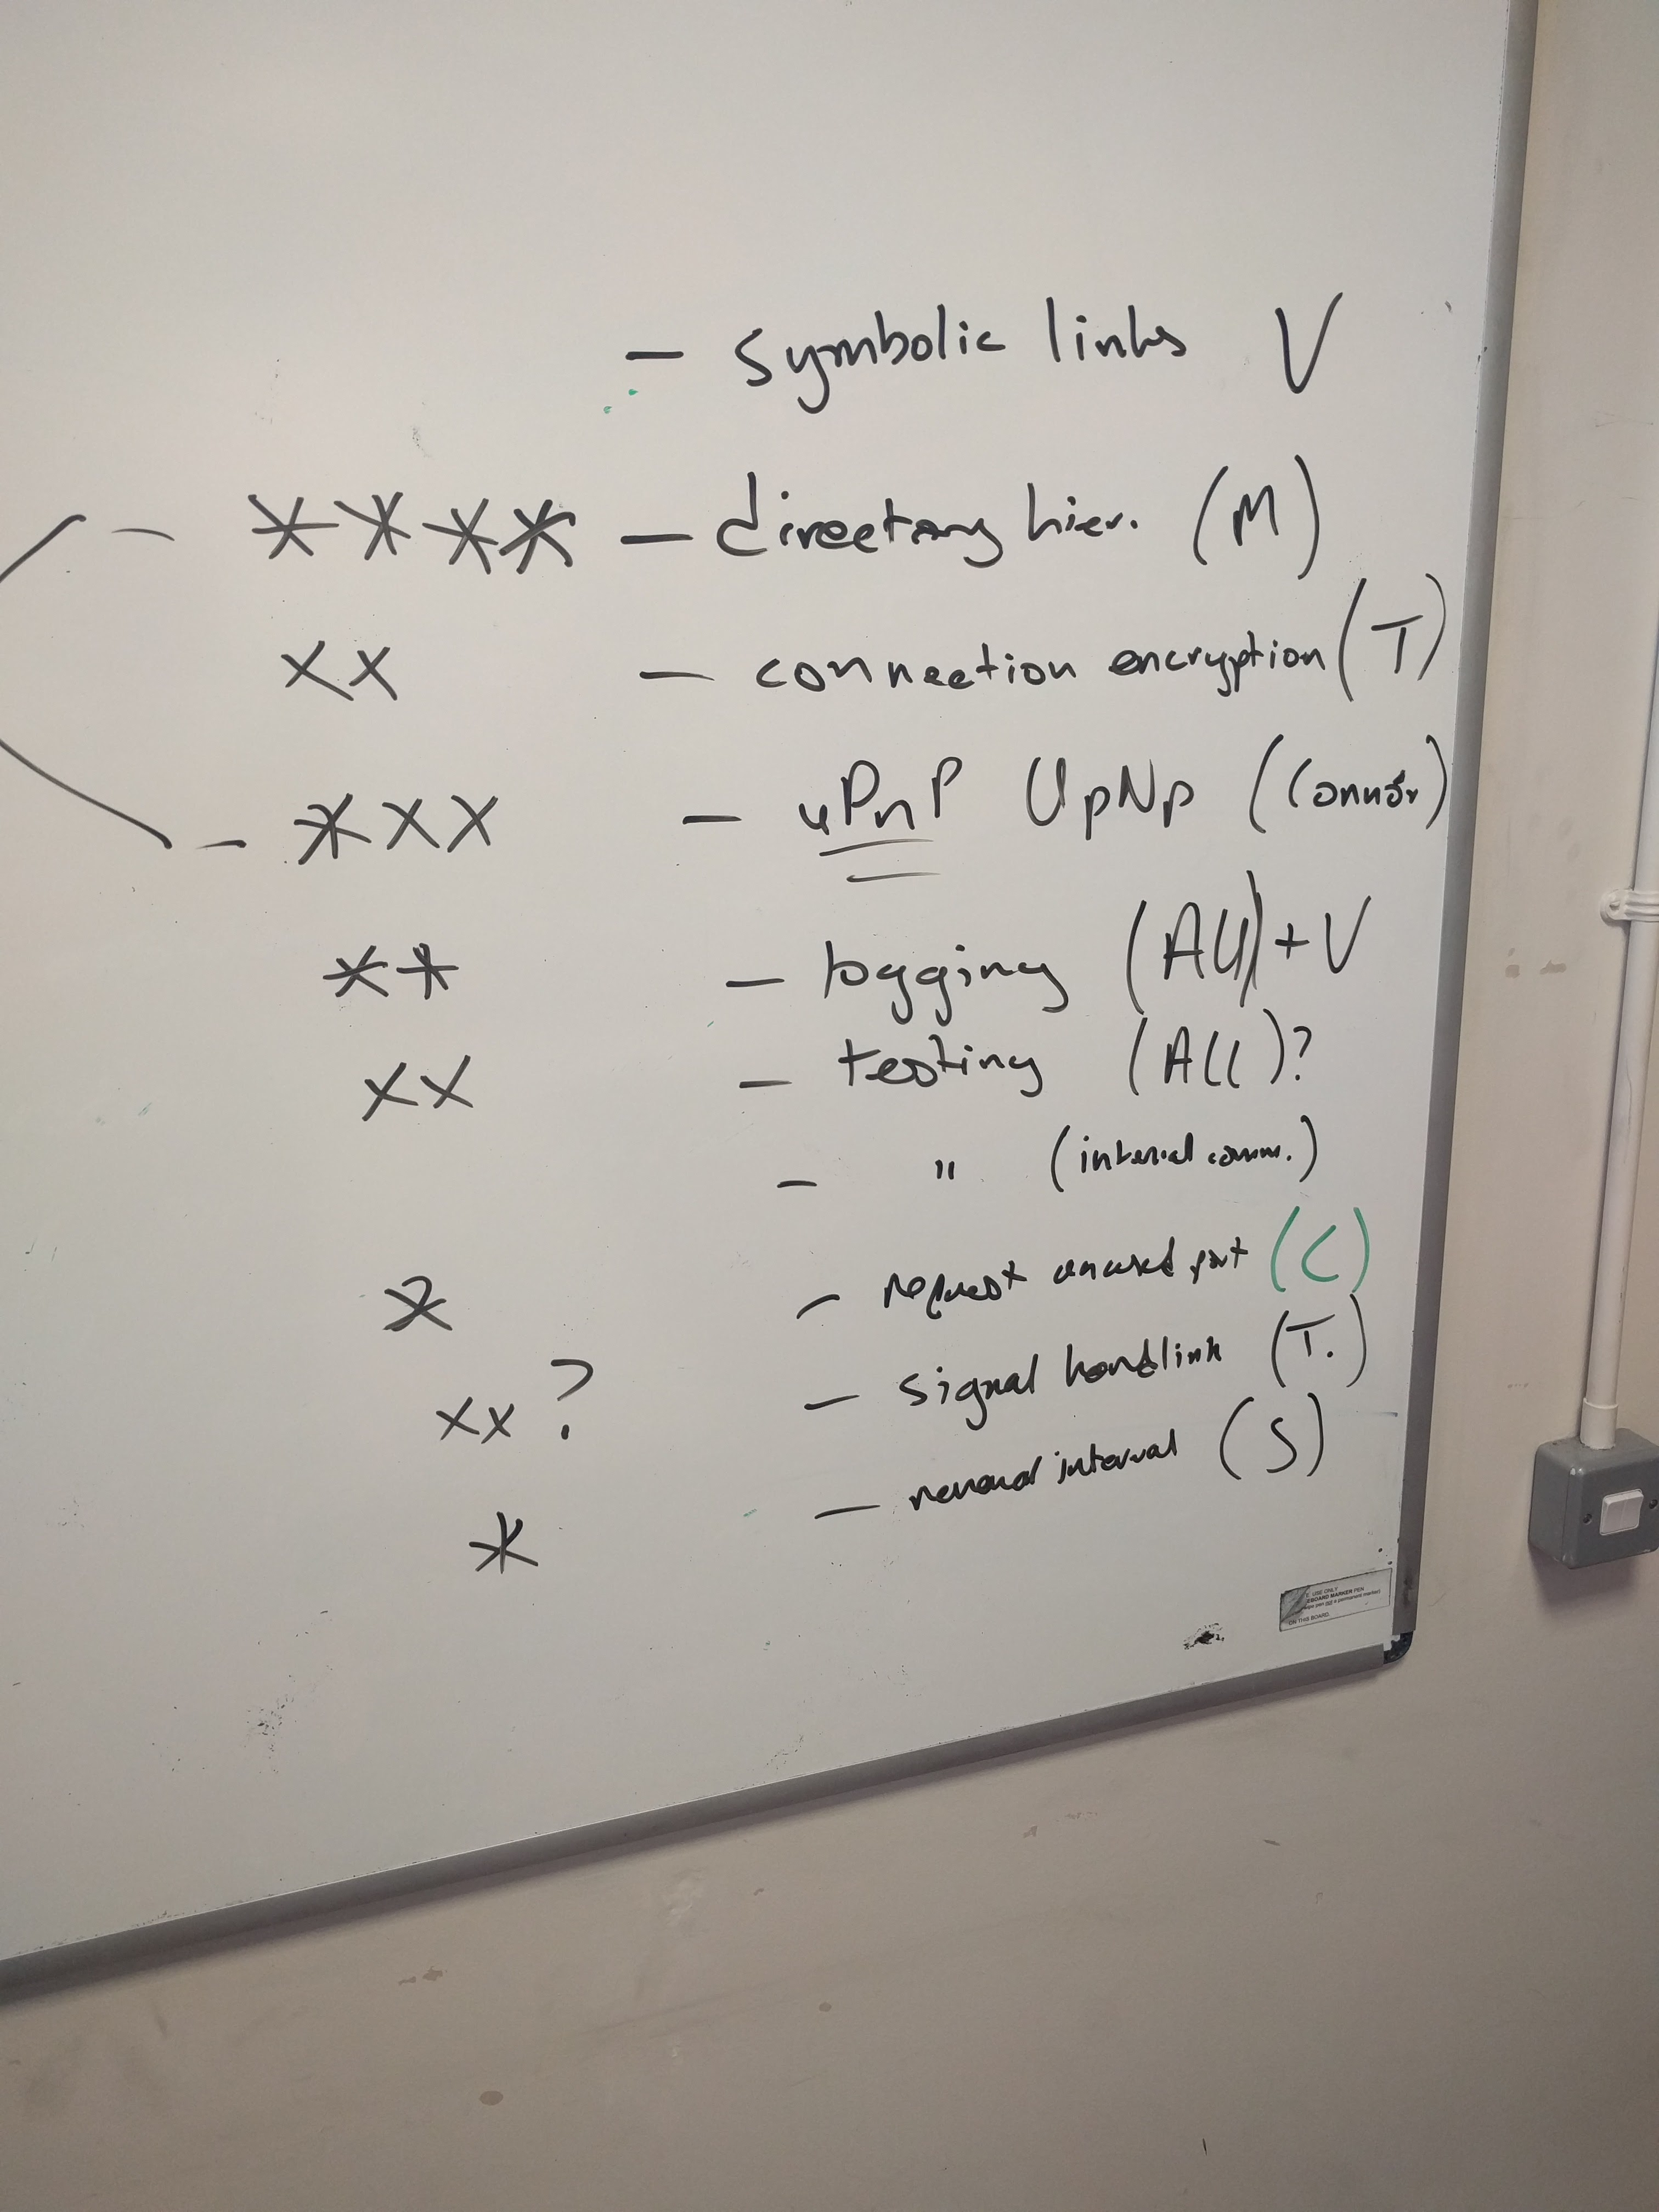 — symbolic links V
– **** — directory hier. (M)
xx — connection encryption (T)
– *xx — uPnP UpNp (Connor)
** — logging (All) + V
xx — testing (All)?
— " (internal comm.)
* – request unused port (C)
xx? — signal handlink (T.)
* — renewal interval (S)
USE ONLY
EBOARD MARKER PEN
ON THIS BOARD.